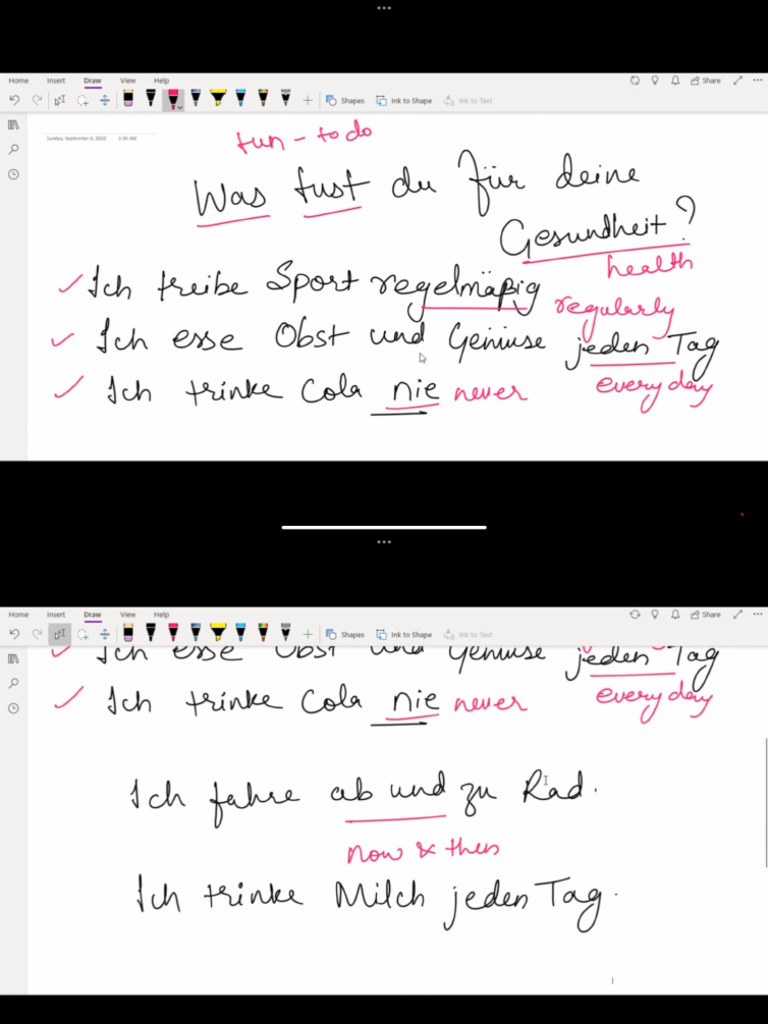 Home Insert Draw View Help Share
Shapes Ink to Shape Ink to Text
Sunday, September 6, 2020 2:54 AM
tun - to do
Was tust du für deine
Gesundheit?
health
Ich treibe Sport regelmäßig
regularly
Ich esse Obst und Gemüse jeden Tag
every day
Ich trinke Cola nie never
Home Insert Draw View Help Share
Shapes Ink to Shape Ink to Text
Ich esse Obst und Gemüse jeden Tag
every day
Ich trinke Cola nie never
Ich fahre ab und zu Rad.
now & then
Ich trinke Milch jeden Tag.